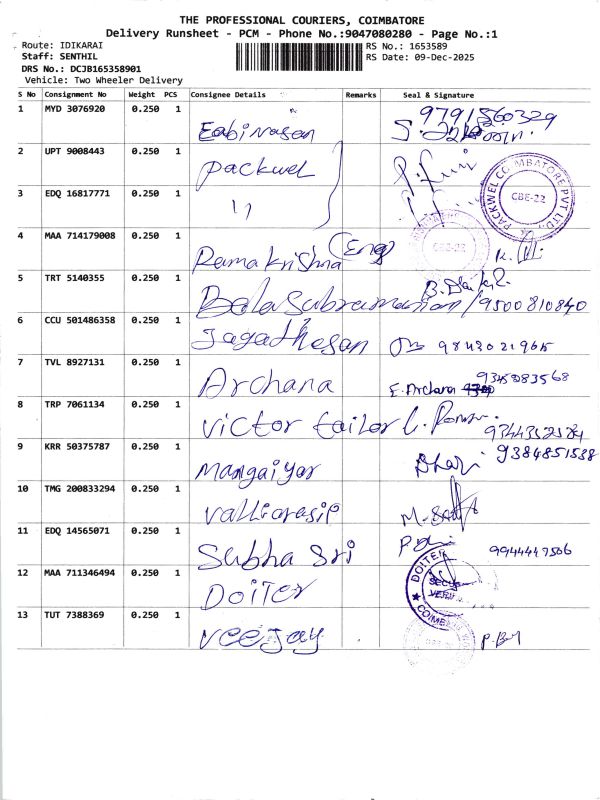 THE PROFESSIONAL COURIERS, COIMBATORE
Delivery Runsheet - PCM - Phone No.:9047080280 - Page No.:1
Route: IDIKARAI RS No.: 1653589
Staff: SENTHIL RS Date: 09-Dec-2025
DRS No.: DCJB165358901
Vehicle: Two Wheeler Delivery
S No Consignment No Weight PCS Consignee Details Remarks Seal & Signature
1 MYD 3076920 0.250 1 9791560329
2 UPT 9008443 0.250 1 Packwel
3 EDQ 16817771 0.250 1 11 PACKWEL COIMBATORE PVT LTD CBE-22
4 MAA 714179008 0.250 1 Rama Krishna (Eng)
5 TRT 5140355 0.250 1 Bala Subramanian / 9500810840
6 CCU 501486358 0.250 1 Jagathesan 9843021965
7 TVL 8927131 0.250 1 Archana E. Archana 9345083568
8 TRP 7061134 0.250 1 Victor tailor
9 KRR 50375787 0.250 1 Mangaiyar 9384851538
10 TMG 200833294 0.250 1 Valliarasip
11 EDQ 14565071 0.250 1 Subha Sri 9944447506
12 MAA 711346494 0.250 1 Doiter DOITER
13 TUT 7388369 0.250 1 Veejay